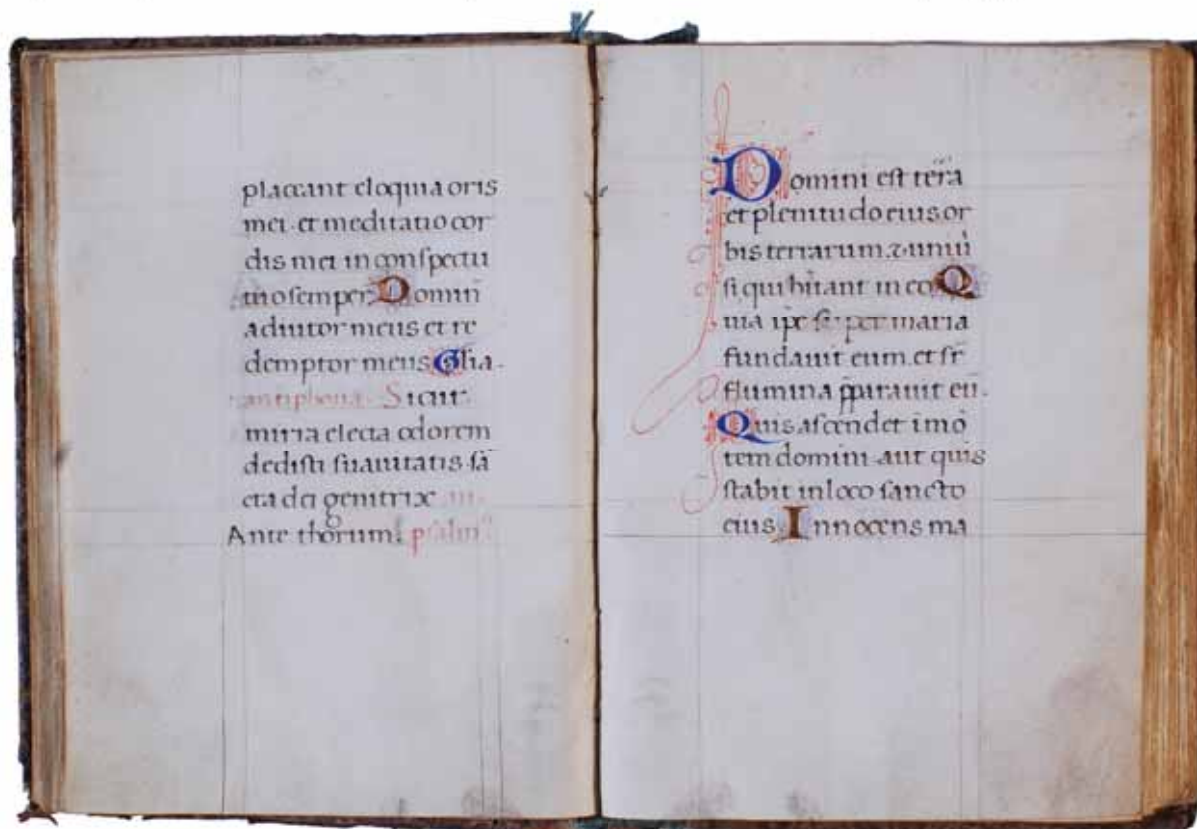 placeant eloquia oris
mei. et meditatio cor
dis mei in conspectu
tuo semper. Domiñ
adiutor meus et re
demptor meus Glia.
antiphona. Sicut
mirra electa odorem
dedisti suauitatis. sã
cta dei genitrix
Ante thorum. psalm
Domini est terra
et plenitudo eius or
bis terrarum. & uniũ
si qui hitant in eo Q
uia ipe super maria
fundauit eum. et sr̄
flumina pparauit eũ.
Quis ascendet i mõ
tem domini. aut quis
stabit in loco sancto
eius. Innocens ma